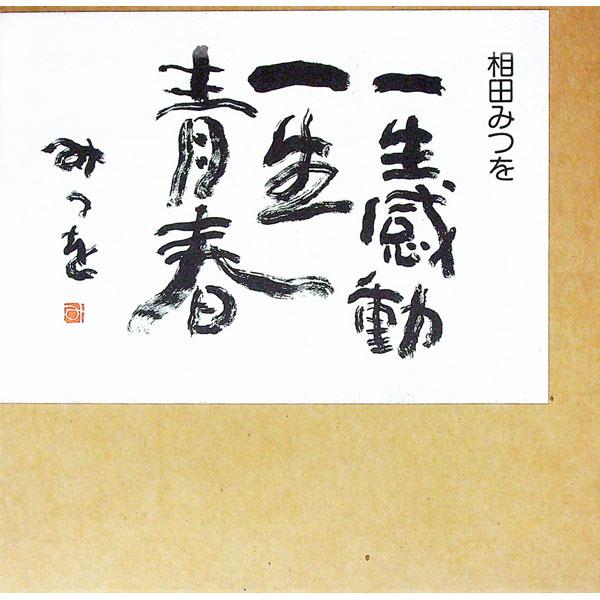 相田みつを
一生感動
一生
青春
みつを